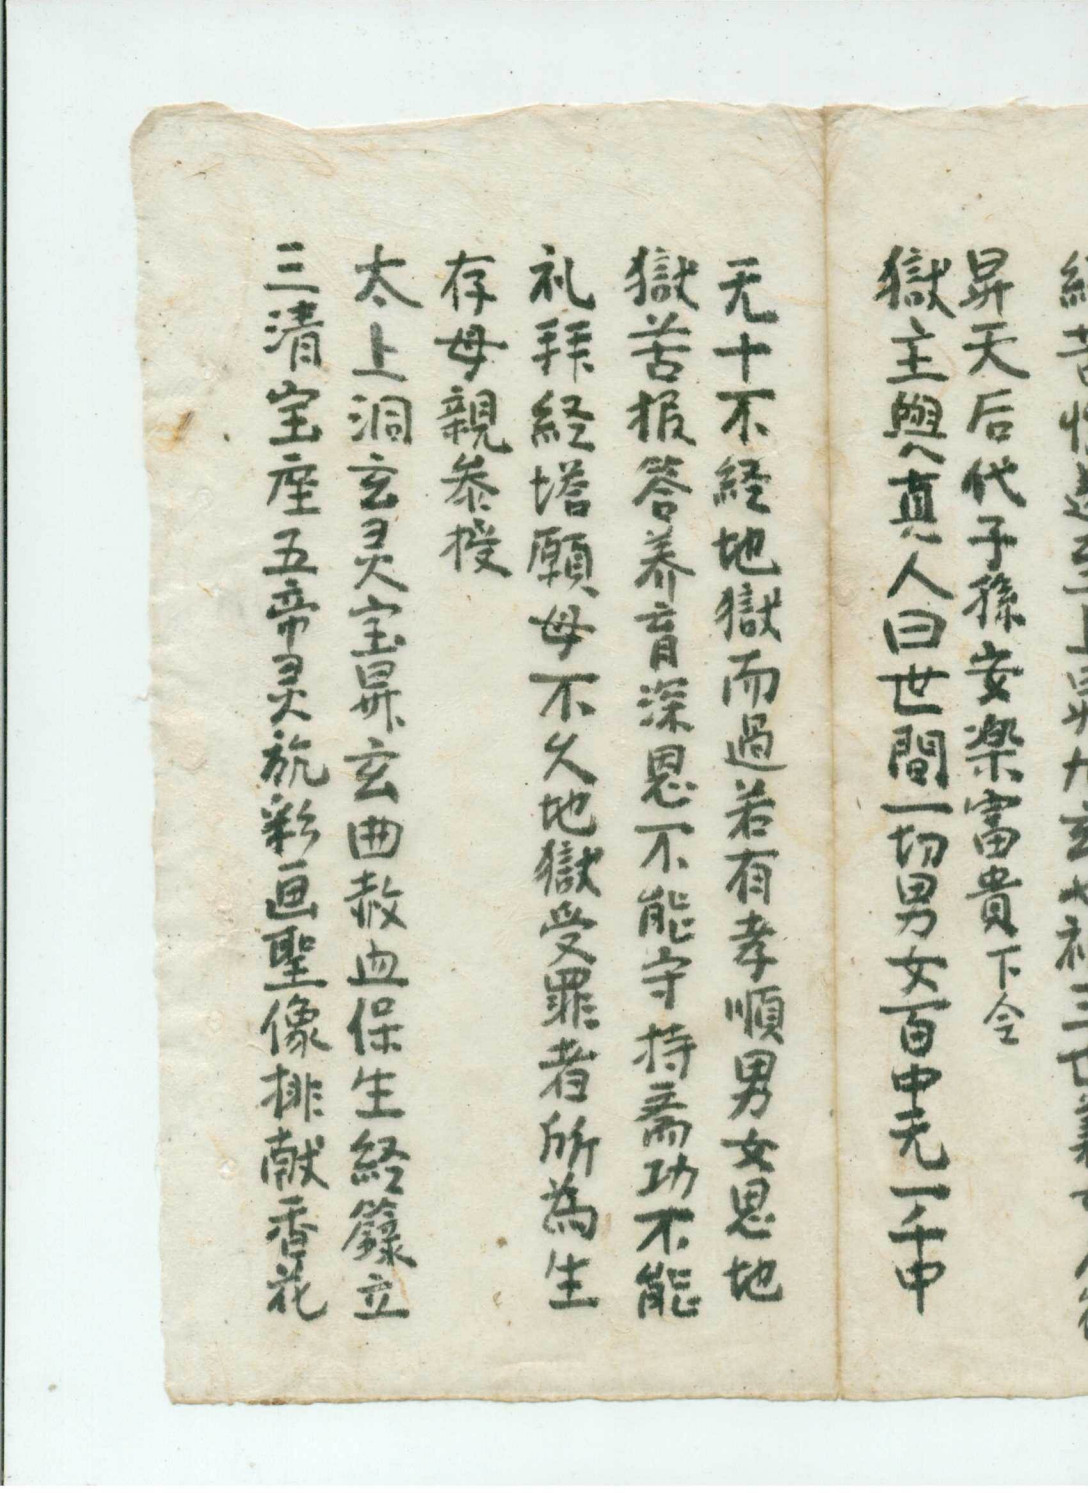 昇天后代子孫安楽富貴下令
獄主與真人曰世間一切男女百中无一千中
无十不経地獄而過若有孝順男女思地
獄苦报答养育深恩不能守持斋功不能
礼拜経塔願母不久地獄受罪者所為生
存母親参授
太上洞玄灵宝昇玄曲赦血保生経籙立
三清宝座五帝灵旂彩画聖像排献香花